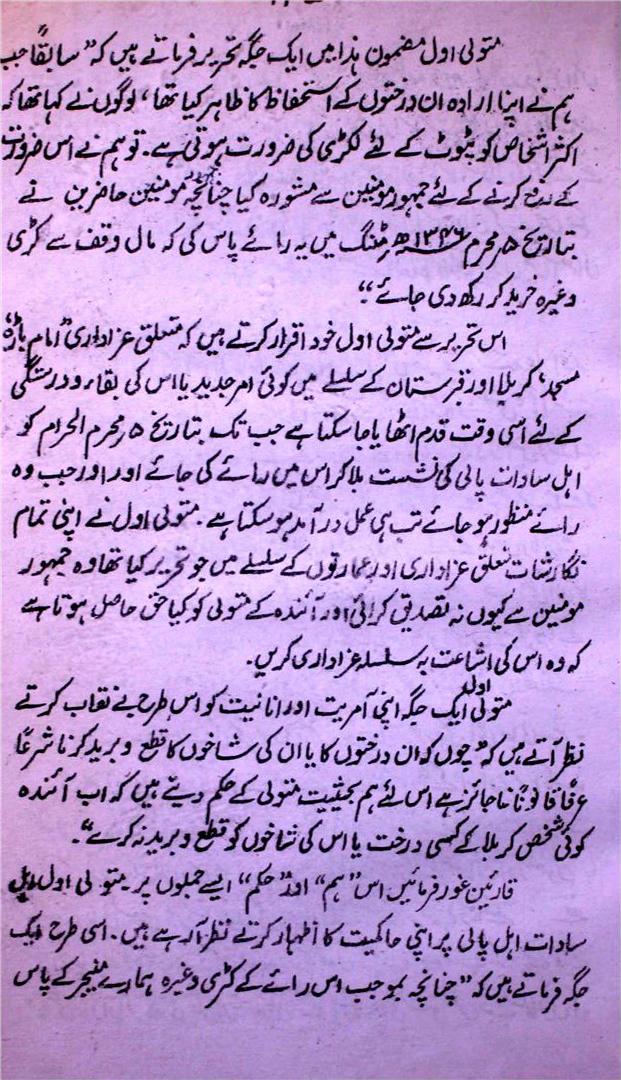 متولی اول مضمون ہذا میں ایک جگہ تحریر فرماتے ہیں کہ ” سابقاً جب
ہم نے اپنا ارادہ ان درختوں کے استحفاظ کا ظاہر کیا تھا ، لوگوں نے کہا تھا کہ
اکثر اشخاص کو پٹوٹ کے لئے لکڑی کی ضرورت ہوتی ہے ۔ تو ہم نے اس ضرورت
کے رفع کرنے کے لئے جمہور مومنین سے مشورہ کیا چنانچہ مومنین حاضرین نے
بتاریخ ۵ محرم ۱۳۴۶ھ مٹنگ میں یہ رائے پاس کی کہ مال وقف سے کڑی
وغیرہ خرید کر رکھ دی جائے “
اس تحریر سے متولی اول خود اقرار کرتے ہیں کہ متعلق عزاداری ” امام باڑہ “
مسجد ، کربلا اور قبرستان کے سلسلے میں کوئی امر جدید یا اس کی بقاء و درستگی
کے لئے اسی وقت قدم اٹھایا جا سکتا ہے جب تک بتاریخ ۵ محرم الحرام کو
اہل سادات پالی کی نشست بلا کر اس میں رائے کی جائے اور اور جب وہ
رائے منظور ہو جائے تب ہی عمل در آمد ہو سکتا ہے ۔ متولی اول نے اپنی تمام
نگارشات متعلق عزاداری اور عمارتوں کے سلسلے میں جو تحریر کیا تھا وہ جمہور
مومنین سے کیوں نہ تصدیق کرائی اور آئندہ کے متولی کو کیا حق حاصل ہوتا ہے
کہ وہ اس کی اشاعت بہ سلسلہ عزاداری کریں ۔
متولی اول ایک جگہ اپنی آمریت اور انانیت کو اس طرح بے نقاب کرتے
نظر آتے ہیں کہ ” چوں کہ ان درختوں کا یا ان کی شاخوں کا قطع و برید کرنا شرعاً
عرفاً قانوناً ناجائز ہے اس لئے ہم بحیثیت متولی کے حکم دیتے ہیں کہ اب آئندہ
کوئی شخص کربلا کے کسی درخت یا اس کی شاخوں کو قطع و برید نہ کرے “ ۔
قارئین غور فرمائیں اس ” ہم “ اور ” حکم “ ایسے جملوں پر متولی اول اہل
سادات اہل پالی پر اپنی حاکمیت کا اظہار کرتے نظر آ رہے ہیں ۔ اسی طرح ایک
جگہ فرماتے ہیں کہ ” چنانچہ بموجب اس رائے کے کڑی وغیرہ ہمارے منیجر کے پاس